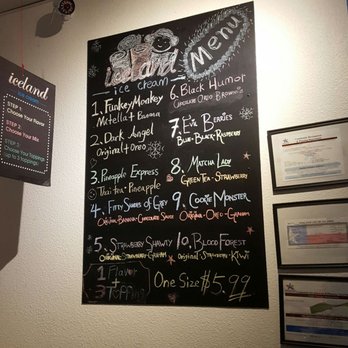 iceland
ice cream
STEP 1
Choose Your Flavor
STEP 2
Choose Your Mix
STEP 3
Choose Your Toppings
up to 3 Toppings
iceland
ice cream
Menu
1. Funkey Monkey
Nutella + Banna
2. Dark Angel
Original + Oreo
3. Pineapple Express
Thai tea - Pineapple
4. Fifty Shades of Grey
Original - Banana - Chocolate Sauce
5. Strawberry Shawty
Original - Strawberry - Graham
6. Black Humor
Chocolate Oreo Brownie
7. Evil Berries
Blue - Black - Raspberry
8. Matcha Lady
Green Tea - Strawberry
9. Cookie Monster
Original - Oreo - Graham
10. Blood Forest
Original - Strawberry - Kiwi
1 Flavor
+
3 Toppins
One Size $5.99